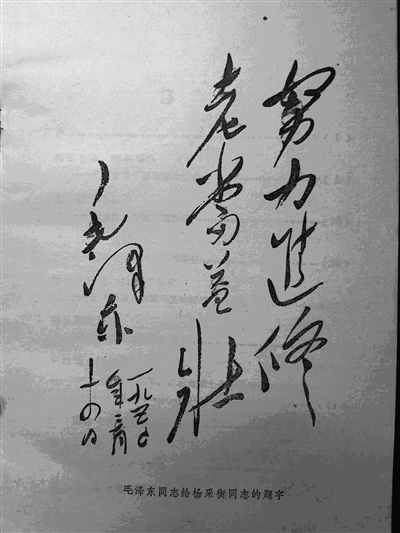 努力進修
老當益壯
毛泽东
一九五〇
年三月
十四日
毛泽东同志给杨采衡同志的题字